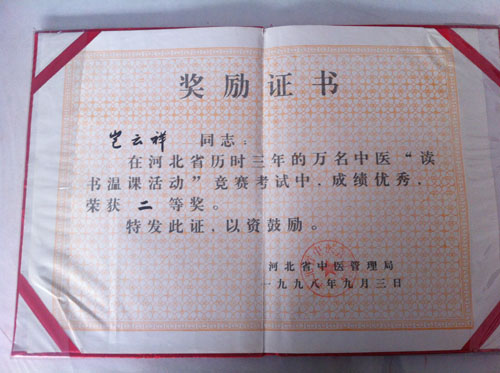 奖励证书
云祥 同志：
在河北省历时三年的万名中医“读
书温课活动”竞赛考试中，成绩优秀，
荣获 二 等奖。
特发此证，以资鼓励。
河北省中医管理局
一九九八年九月三日